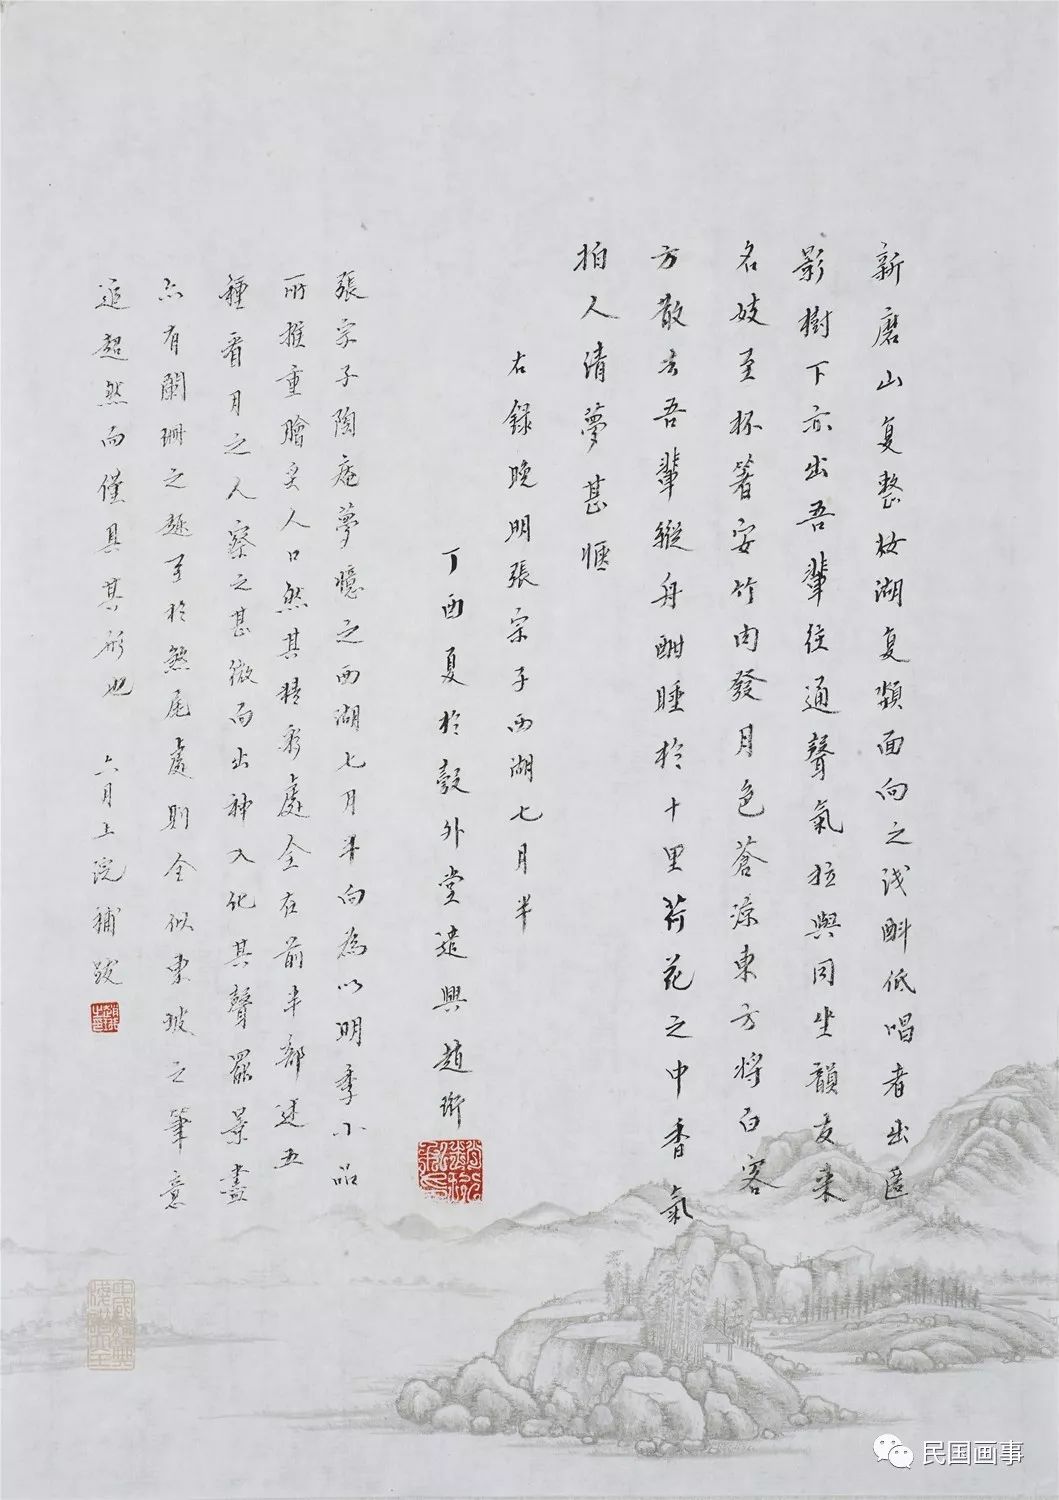 新磨山复整妝湖复頮面向之浅斟低唱者出匿
影樹下亦出吾輩往通聲氣拉與同坐韻友来
名妓至杯箸安竹肉發月色蒼凉東方將白客
方散去吾輩縱舟酣睡於十里荷花之中香氣
拍人清夢甚愜
右録晚明張宗子西湖七月半
丁酉夏於彀外堂遣興趙珩
張宗子陶庵夢憶之西湖七月半向為以明季小品
所推重膾炙人口然其精彩處全在前半部述五
種看月之人察之甚微而出神入化其聲罷景盡
亦有闌珊之趣至於煞尾處則全似東坡之筆意
追超然而僅具其形也 六月上浣補跋
民国画事